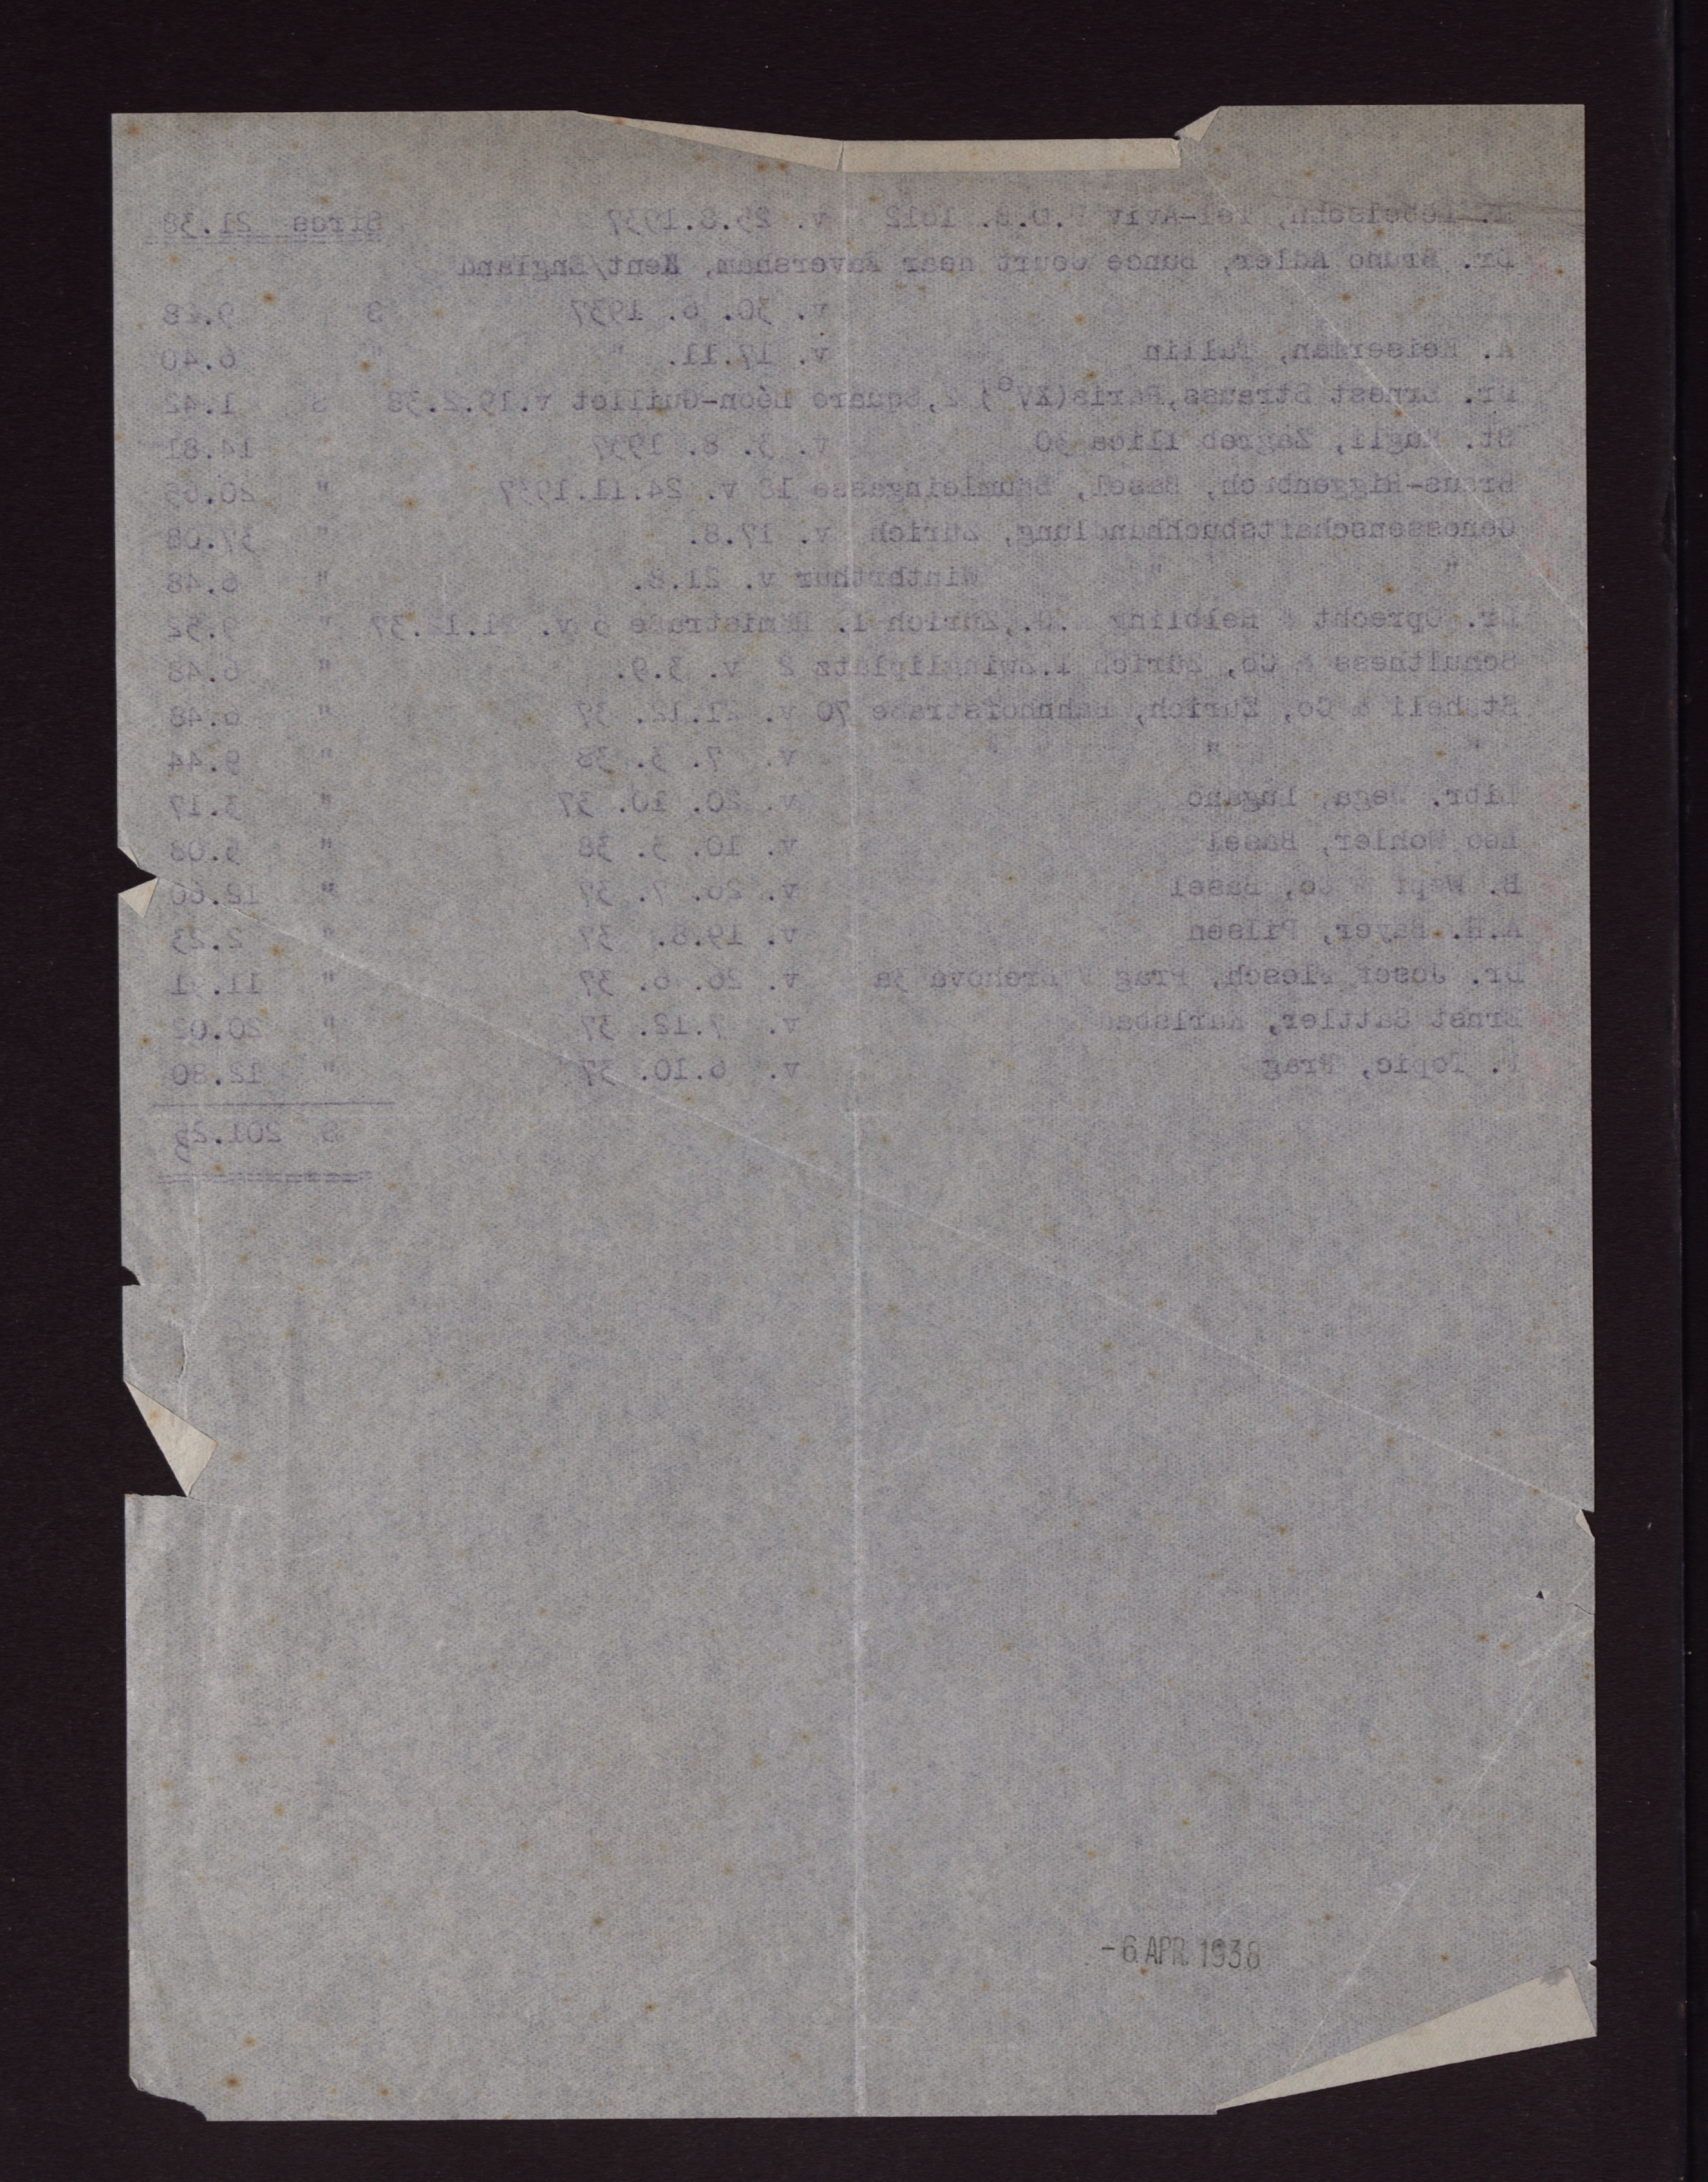 Tel-Aviv P.O.B. 1612 v. 25.8.1937 Sires 21.38
Dr. Bruno Adler, Bunce Court near Faversham, Kent/England
v. 30. 6. 1937 S 9.48
A. Keiserman, Tallin v. 17.11. " " 6.40
Dr. Ernest Strauss, Paris(XVe) 2, Square Léon-Guillot v.19.2.38 S 1.42
St. Kugli, Zagreb Ilica 30 v. 3. 8. 1937 14.81
Braus-Riggenbach, Basel, Bäumleingasse 18 v. 24.11.1937 " 20.65
Genossenschaftsbuchhandlung, Zürich v. 17.8. " 37.08
" " Winterthur v. 21.8. " 6.48
Dr. Oprecht & Helbling Zürich 1. Rämistraße 5 v. 37 " 9.52
Schulthess & Co, Zürich 1.Zwingliplatz 2 v. 3.9. " 6.48
Stäheli & Co, Zürich, Bahnhofstraße 70 v. 21.12. 37 " 6.48
" " " v. 7. 3. 38 " 9.44
Libr. Wega, Lugano v. 20. 10. 37 " 3.17
Leo Wohler, Basel v. 10. 3. 38 " 5.08
B. Wepf & Co, Basel v. 26. 7. 37 " 12.60
A.H. Bayer, Pilsen v. 19.8. 37 " 2.23
Dr. Josef Flesch, Prag V Brehova 3a v. 26. 6. 37 " 11.91
Ernst Sattler, Karlsbad v. 7.12. 37 " 20.02
F. Topic, Prag v. 6.10. 37 " 12.80
S 201.25
-6. APR. 1938